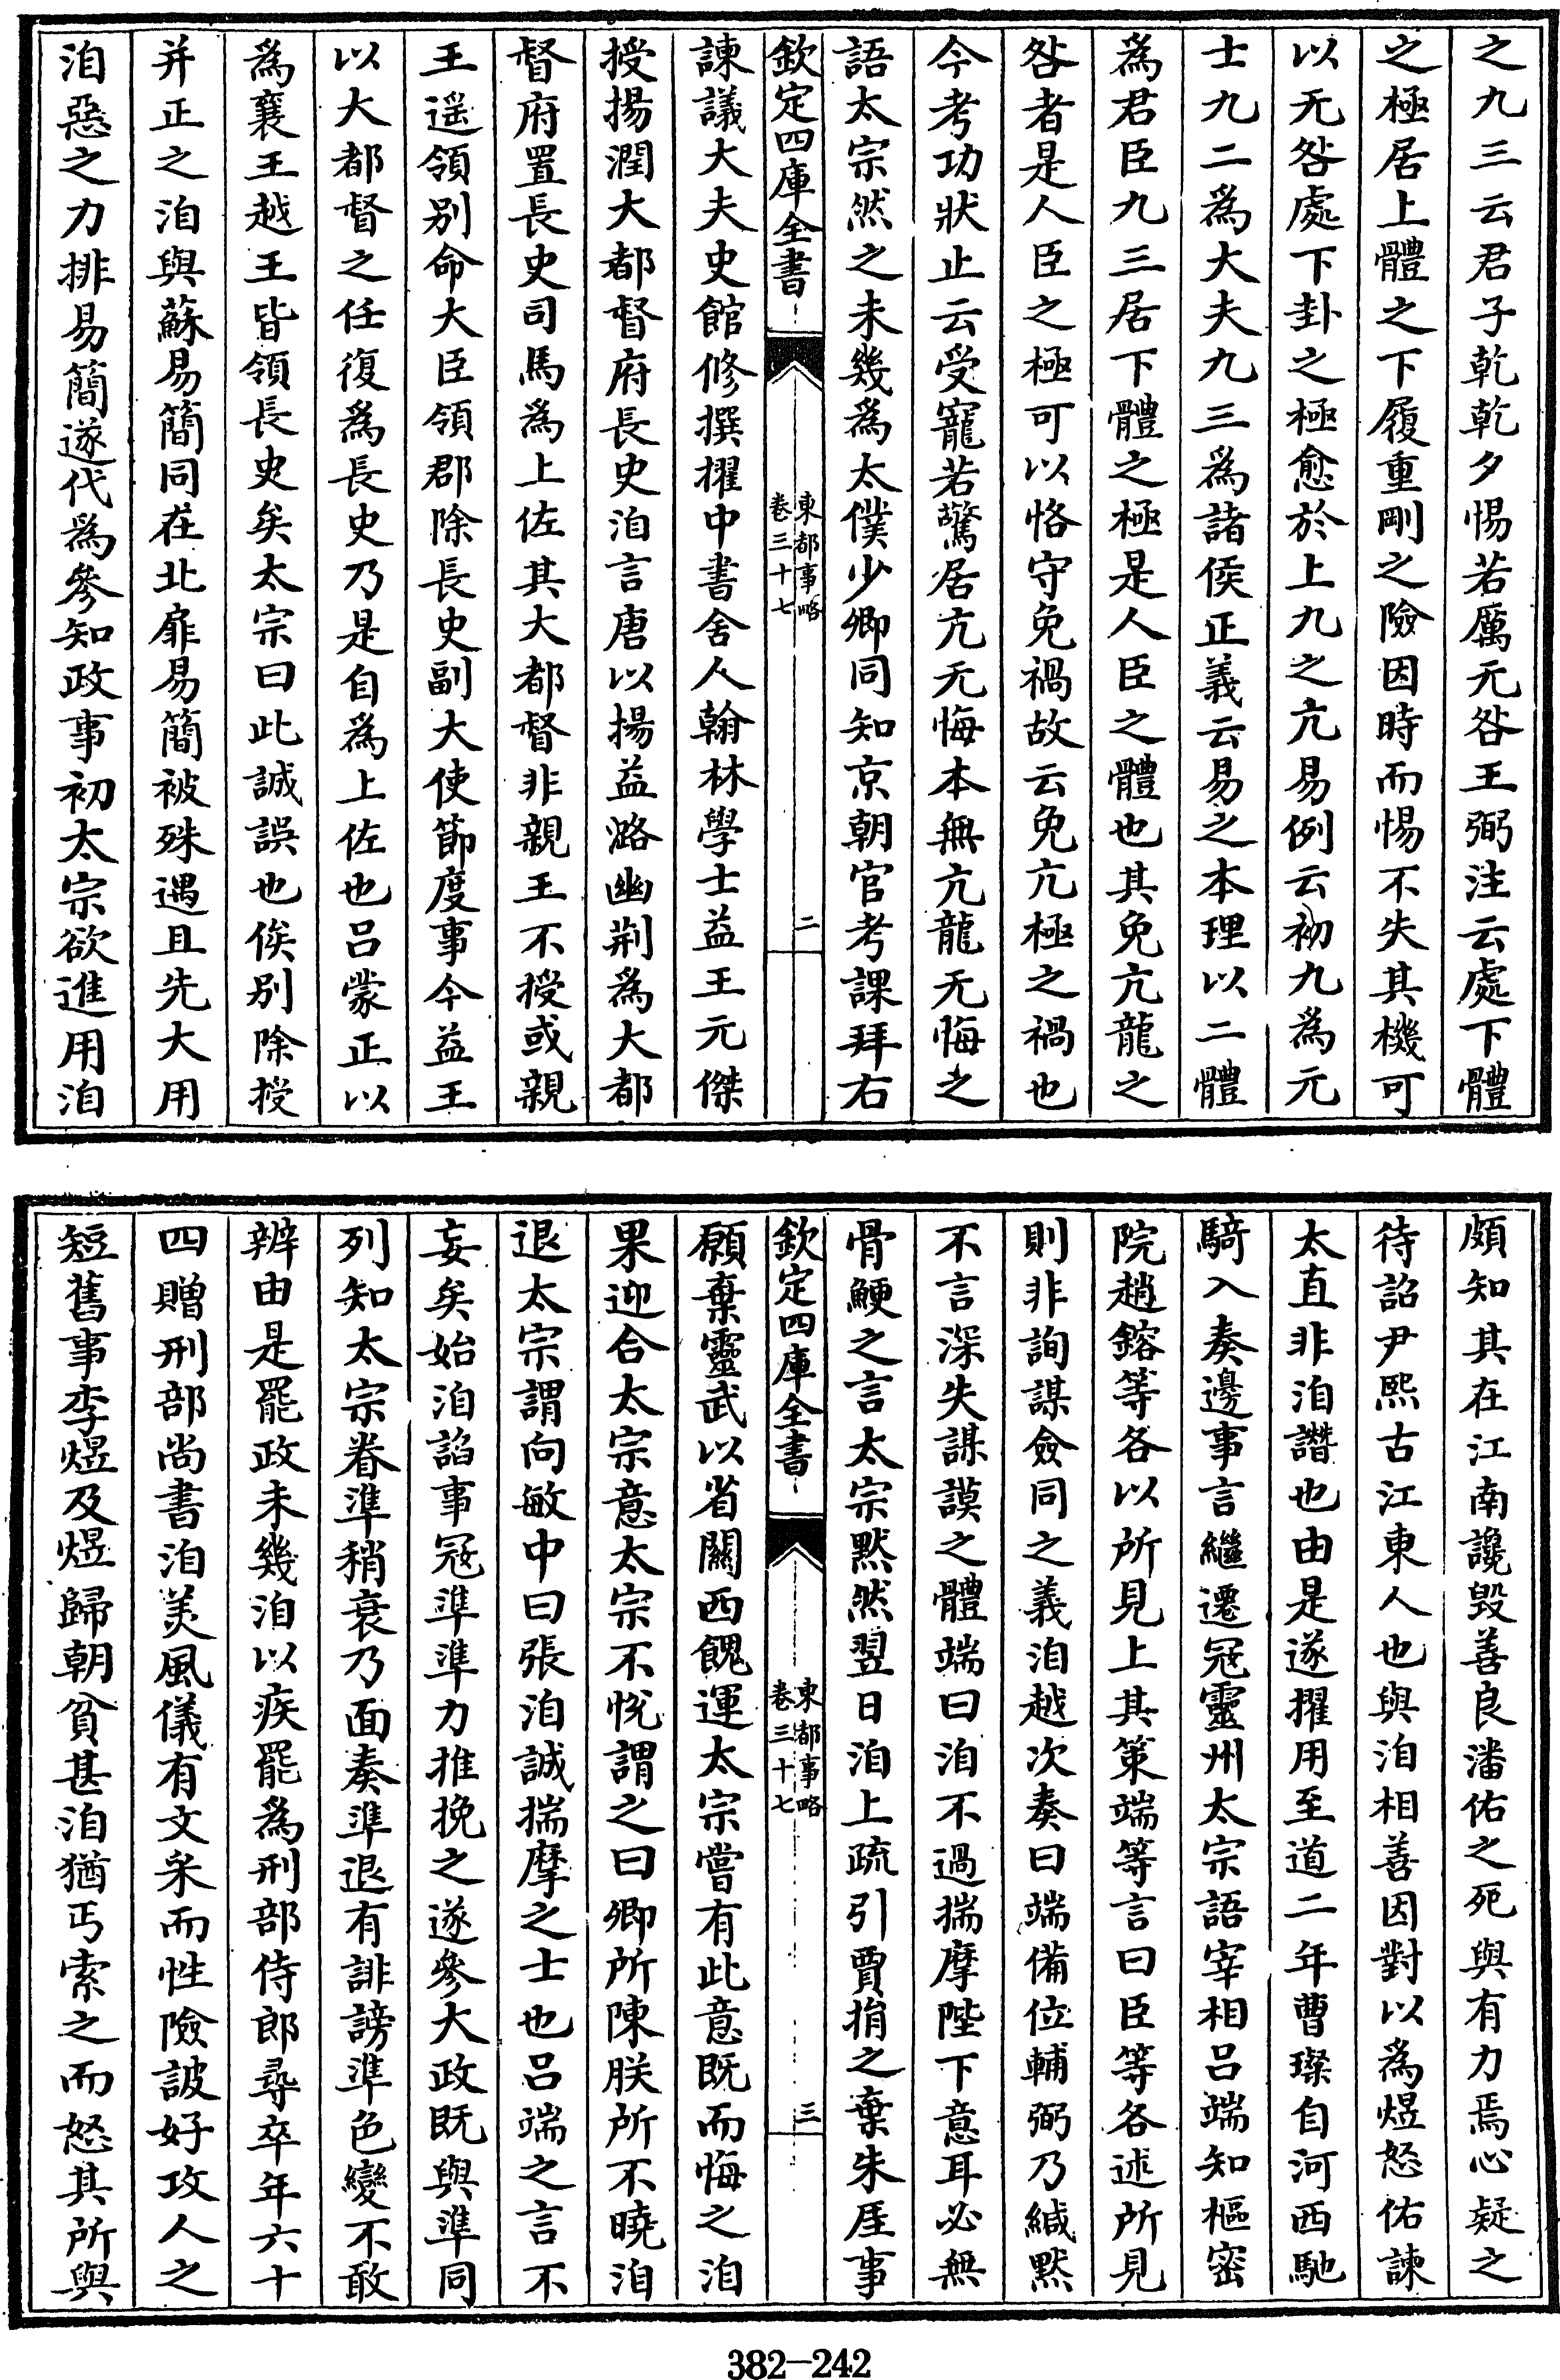 之九三云君子乾乾夕惕若厲无咎王弼注云處下體
之極居上體之下履重剛之險因時而惕不失其機可
以无咎處下卦之極愈於上九之亢易例云初九為元
士九二為大夫九三為諸侯正義云易之本理以二體
為君臣九三居下體之極是人臣之體也其免亢龍之
咎者是人臣之極可以恪守免禍故云免亢極之禍也
今考功狀止云受寵若驚居亢无悔本無亢龍无悔之
語太宗然之未幾為太僕少卿同知京朝官考課拜右
欽定四庫全書
東都事略
卷三十七
二
諫議大夫史館修撰擢中書舍人翰林學士益王元傑
授揚潤大都督府長史洎言唐以揚益潞幽荆為大都
督府置長史司馬為上佐其大都督非親王不授或親
王遥領別命大臣領郡除長史副大使節度事今益王
以大都督之任復為長史乃是自為上佐也吕蒙正以
為襄王越王皆領長史矣太宗曰此誠誤也俟別除授
并正之洎與蘇易簡同在北扉易簡被殊遇且先大用
洎惡之力排易簡遂代為參知政事初太宗欲進用洎
頗知其在江南讒毀善良潘佑之死與有力焉心疑之
待詔尹熙古江東人也與洎相善因對以為煜怒佑諫
太直非洎譖也由是遂擢用至道二年曹璨自河西馳
騎入奏邊事言繼遷寇靈州太宗語宰相吕端知樞密
院趙鎔等各以所見上其策端等言曰臣等各述所見
則非詢謀僉同之義洎越次奏曰端備位輔弼乃緘默
不言深失謀謨之體端曰洎不過揣摩陛下意耳必無
骨鯁之言太宗默然翌日洎上疏引賈捐之棄朱厓事
欽定四庫全書
東都事略
卷三十七
三
願棄靈武以省關西餽運太宗嘗有此意既而悔之洎
果迎合太宗意太宗不悅謂之曰卿所陳朕所不曉洎
退太宗謂向敏中曰張洎誠揣摩之士也吕端之言不
妄矣始洎諂事寇準準力推挽之遂參大政既與準同
列知太宗眷準稍衰乃面奏準退有誹謗準色變不敢
辨由是罷政未幾洎以疾罷為刑部侍郎尋卒年六十
四贈刑部尚書洎美風儀有文采而性險詖好攻人之
短舊事李煜及煜歸朝貧甚洎猶丐索之而怒其所與
382-242